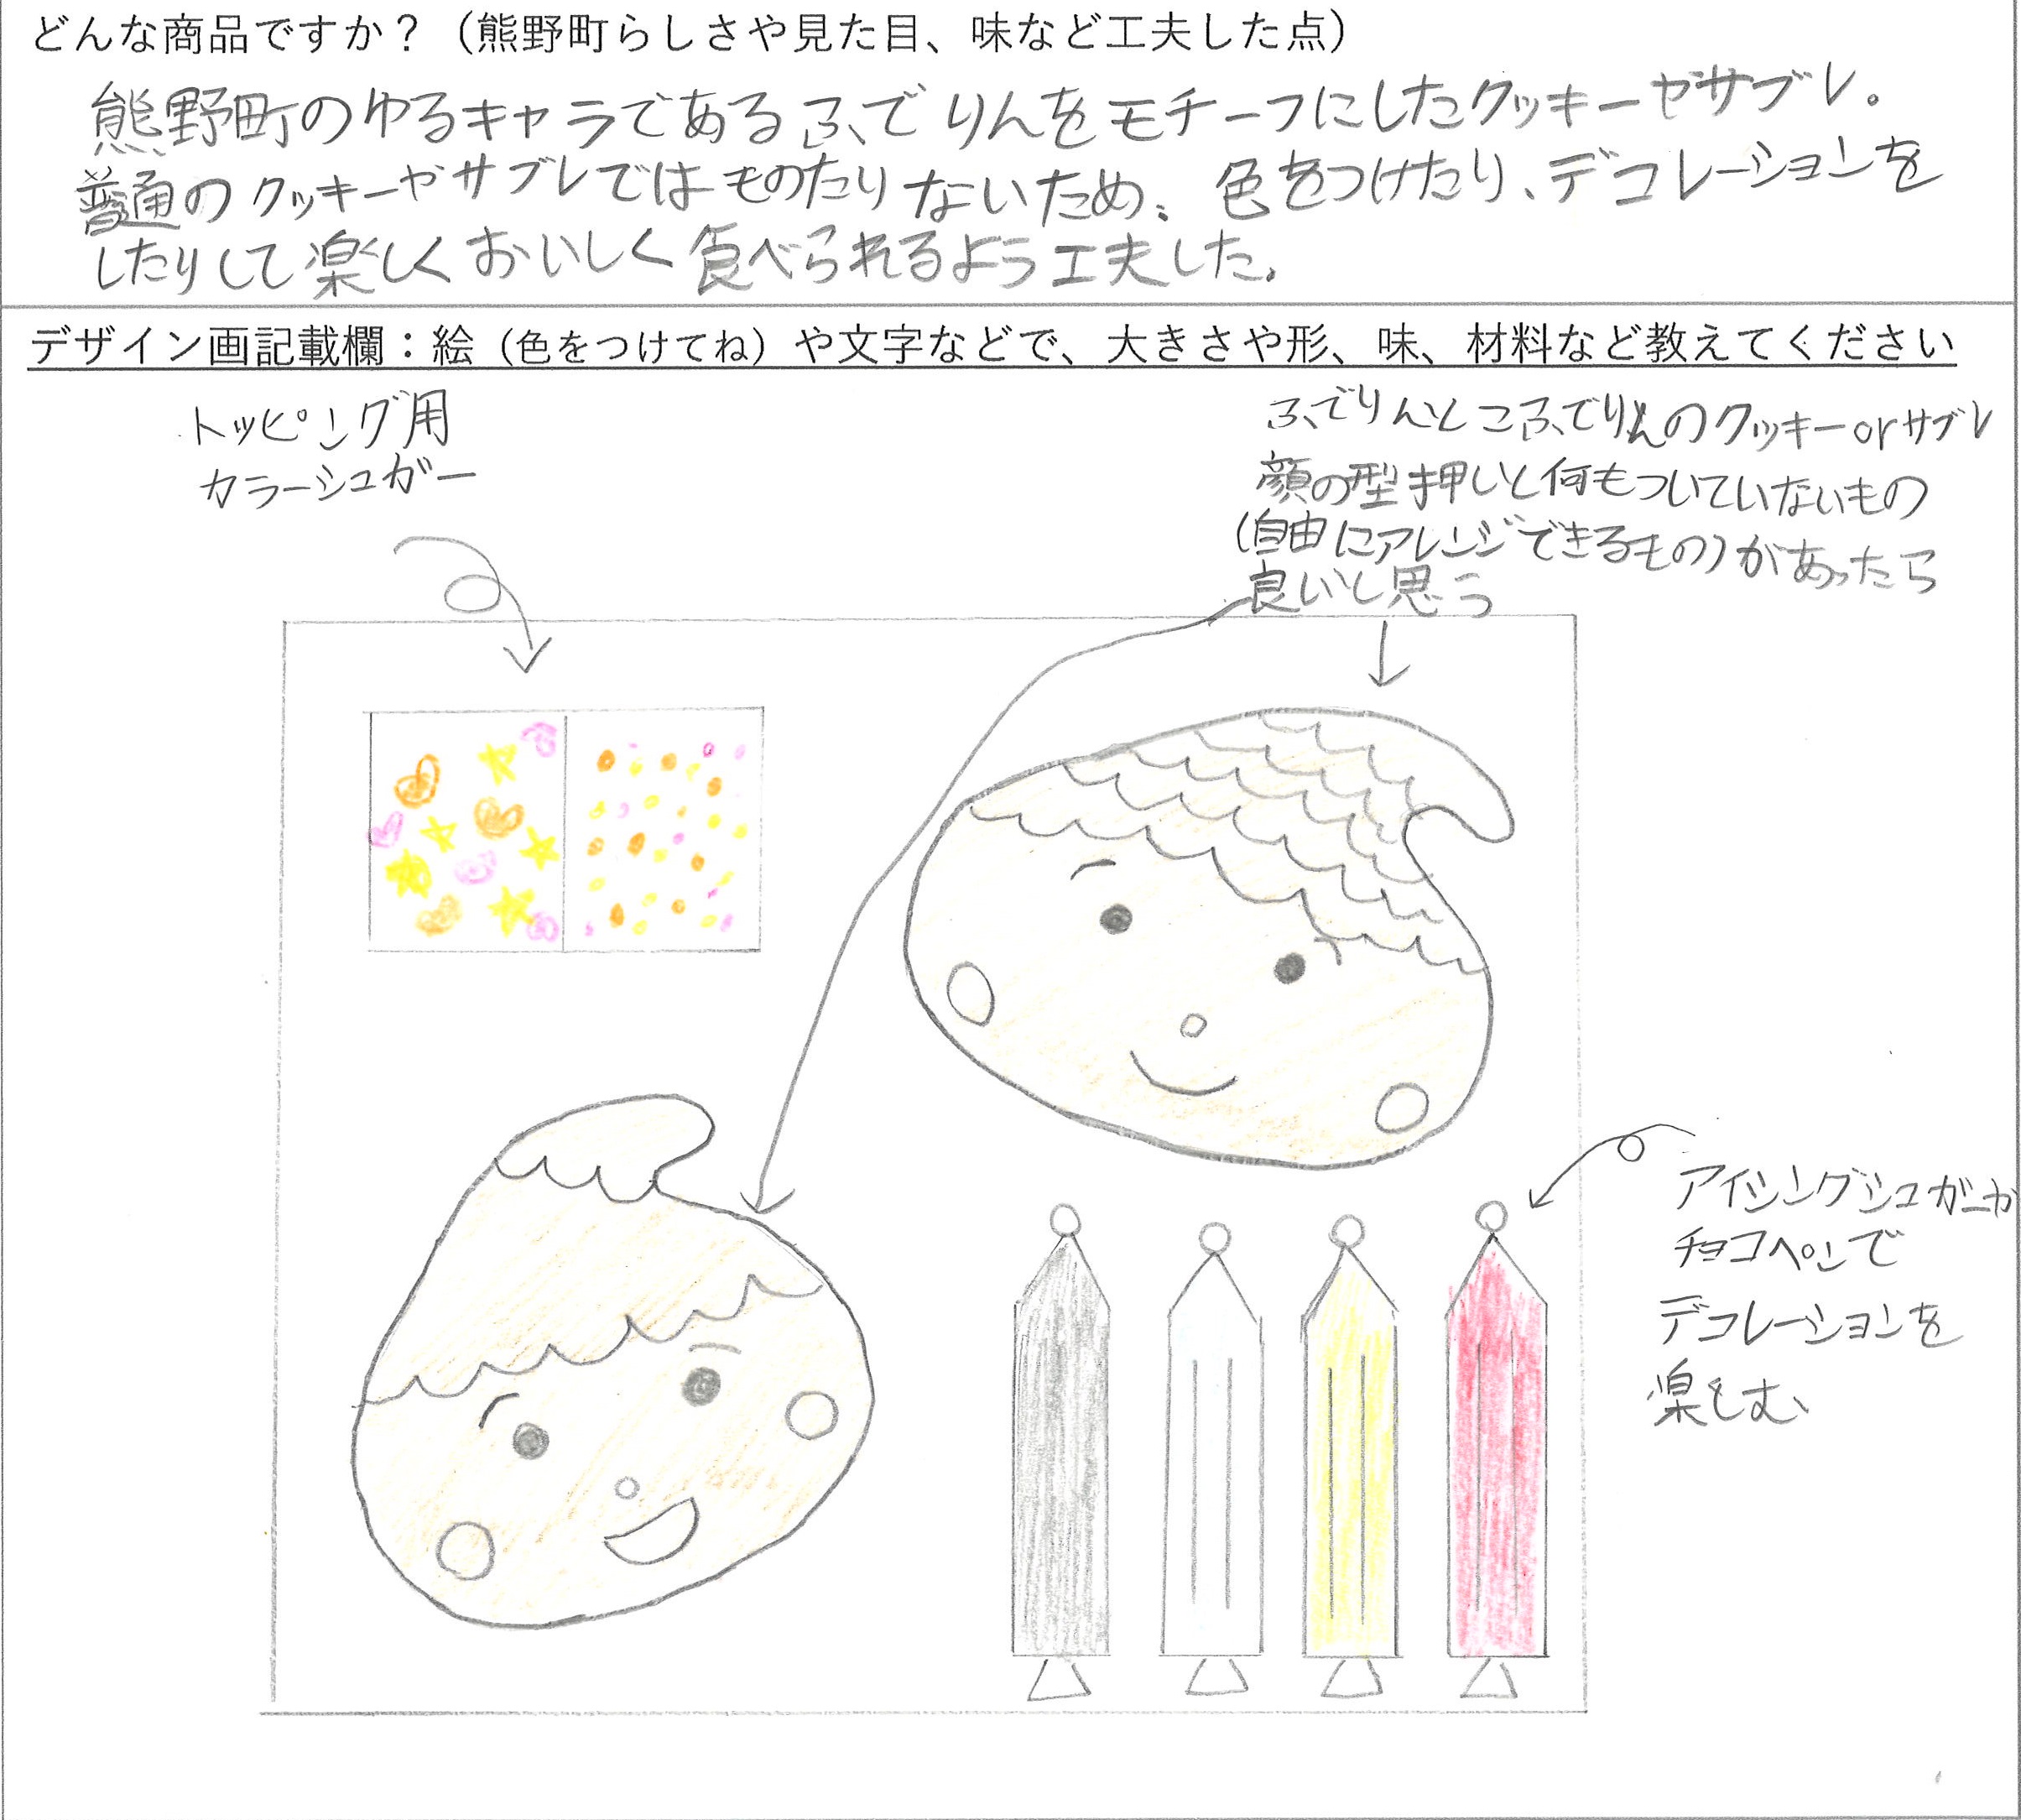 どんな商品ですか？（熊野町らしさや見た目、味など工夫した点）
熊野町のゆるキャラであるふでりんをモチーフにしたクッキーやサブレ。
普通のクッキーやサブレではものたりないため、色をつけたり、デコレーションを
したりして楽しくおいしく食べられるよう工夫した。
デザイン画記載欄：絵（色をつけてね）や文字などで、大きさや形、味、材料など教えてください
トッピング用
カラーシュガー
ふでりんとこふでりんのクッキーorサブレ
顔の型押しいと何もついていないもの
(自由にアレンジできるもの)があったら
良いと思う
アイシングシュガーか
チョコペンで
デコレーションを
楽しむ